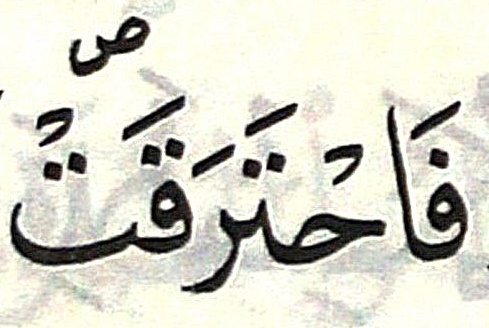 فَاحْتَرَقَتْ ص